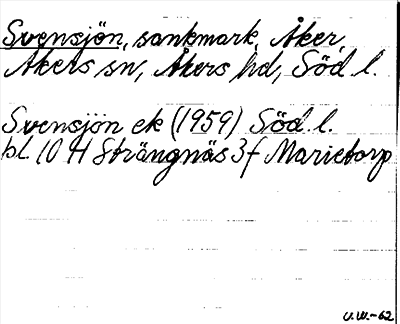 Svensjön, sankmark, Åker,
Åkers sn, Åkers hd, Söd. l.
Svensjön ek (1959) Söd. l.
bl 10 H Strängnäs 3f Marietorp
U.W.-62